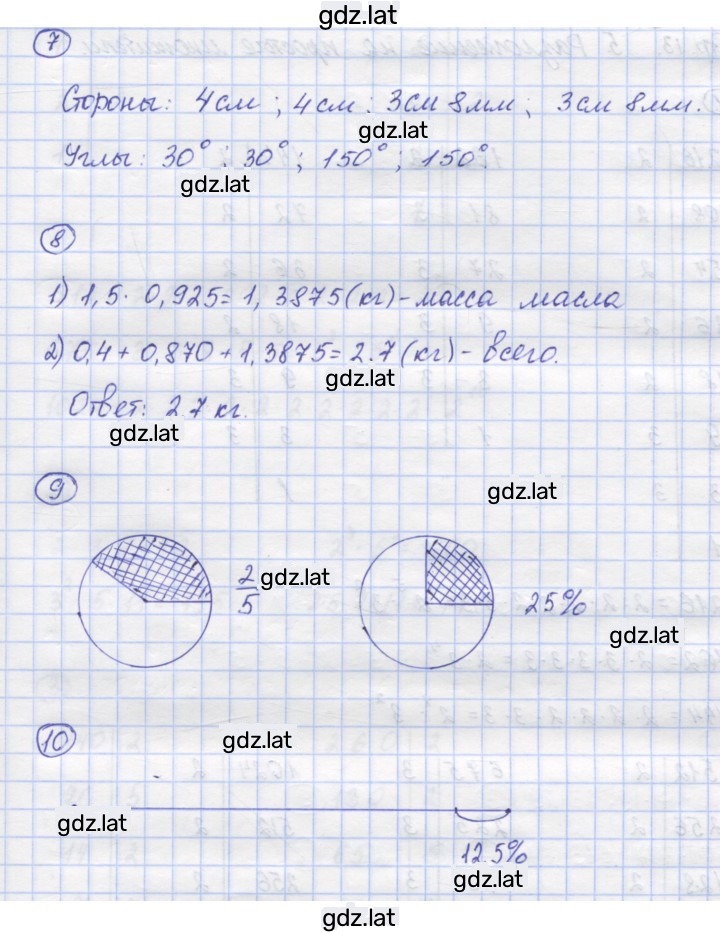 gdz.lat
7
Стороны: 4см ; 4см : 3см 8мм ; 3см 8мм.
gdz.lat
Углы: 30° : 30° ; 150° ; 150°.
gdz.lat
8
1) 1,5 · 0,925 = 1,3875 (кг) - масса масла
2) 0,4 + 0,870 + 1,3875 = 2.7 (кг) - всего.
gdz.lat
Ответ: 2.7 кг.
gdz.lat
9
gdz.lat
2/5 gdz.lat
25%
gdz.lat
10
gdz.lat
gdz.lat
12.5%
gdz.lat
gdz.lat